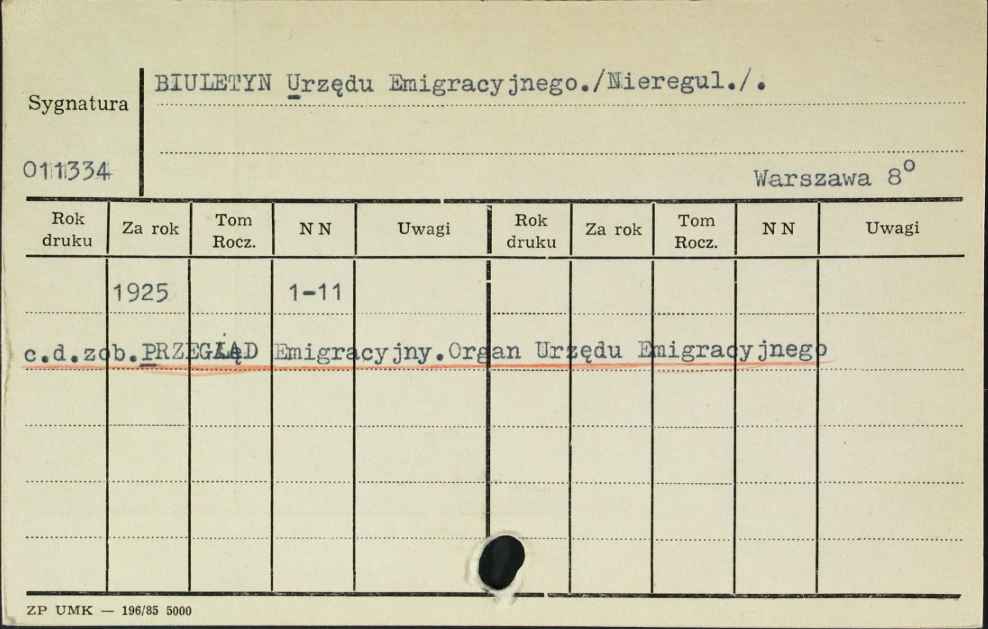 BIULETYN Urzędu Emigracyjnego./Nieregul./.
Sygnatura
011334
Warszawa 8°
Rok druku Za rok Tom Rocz. N N Uwagi Rok druku Za rok Tom Rocz. N N Uwagi
1925 1-11
c.d.zob.PRZEGLĄD Emigracyjny.Organ Urzędu Emigracyjnego
ZP UMK — 196/85 5000